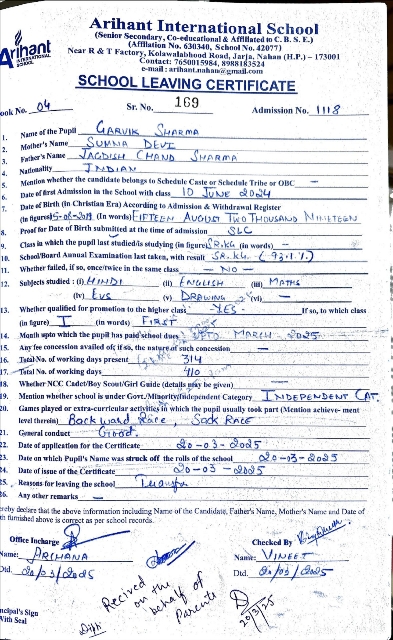 Arihant International School
(Senior Secondary, Co-educational & Affiliated to C. B. S. E.)
(Affiliation No. 630340, School No. 42077)
Near R & T Factory, Kolawalabhood Road, Jarja, Nahan (H.P.) – 173001
Contact: 7650015984, 8988183524
e-mail : arihant.nahan@gmail.com
Arihant
INTERNATIONAL SCHOOL
SCHOOL LEAVING CERTIFICATE
ook No. 04 Sr. No. 169 Admission No. 1118
1. Name of the Pupil GARVIK SHARMA
2. Mother's Name SUMNA DEVI
3. Father's Name JAGDISH CHAND SHARMA
4. Nationality INDIAN
5. Mention whether the candidate belongs to Schedule Caste or Schedule Tribe or OBC —
6. Date of first Admission in the School with class 10 JUNE 2024
7. Date of Birth (in Christian Era) According to Admission & Withdrawal Register
(in figures) 5-08-2019 (In words) FIFTEEN AUGUST TWO THOUSAND NINETEEN
8. Proof for Date of Birth submitted at the time of admission SLC
9. Class in which the pupil last studied/is studying (in figure) SR.KG (in words) —
10. School/Board Annual Examination last taken, with result SR.KG (93.1.%)
11. Whether failed, if so, once/twice in the same class — NO —
12. Subjects studied : (i) HINDI (ii) ENGLISH (iii) MATHS
(iv) EVS (v) DRAWING (vi) —
13. Whether qualified for promotion to the higher class — YES — If so, to which class
(in figure) I (in words) FIRST
14. Month upto which the pupil has paid school dues UPTO MARCH 2025
15. Any fee concession availed of; if so, the nature of such concession —
16. Total No. of working days present 314
17. Total No. of working days 410
18. Whether NCC Cadet/Boy Scout/Girl Guide (details may be given) —
19. Mention whether school is under Govt./Minority/Independent Category INDEPENDENT CAT.
20. Games played or extra-curricular activities in which the pupil usually took part (Mention achieve- ment
level therein) Backward Race, Sack RACE
21. General conduct Good.
22. Date of application for the Certificate 20-03-2025
23. Date on which Pupil's Name was struck off the rolls of the school 20-03-2025
24. Date of issue of the Certificate 20-03-2025
25. Reasons for leaving the school Transfer
26. Any other remarks —
reby declare that the above information including Name of the Candidate, Father's Name, Mother's Name and Date of
th furnished above is correct as per school records.
Office Incharge Checked By
Name: ARCHANA Name: VINEET
Dtd. 20/03/2025 Dtd. 20/03/2025
Recived on the behalf of Parents
20/3/25
ncipal's Sign
With Seal